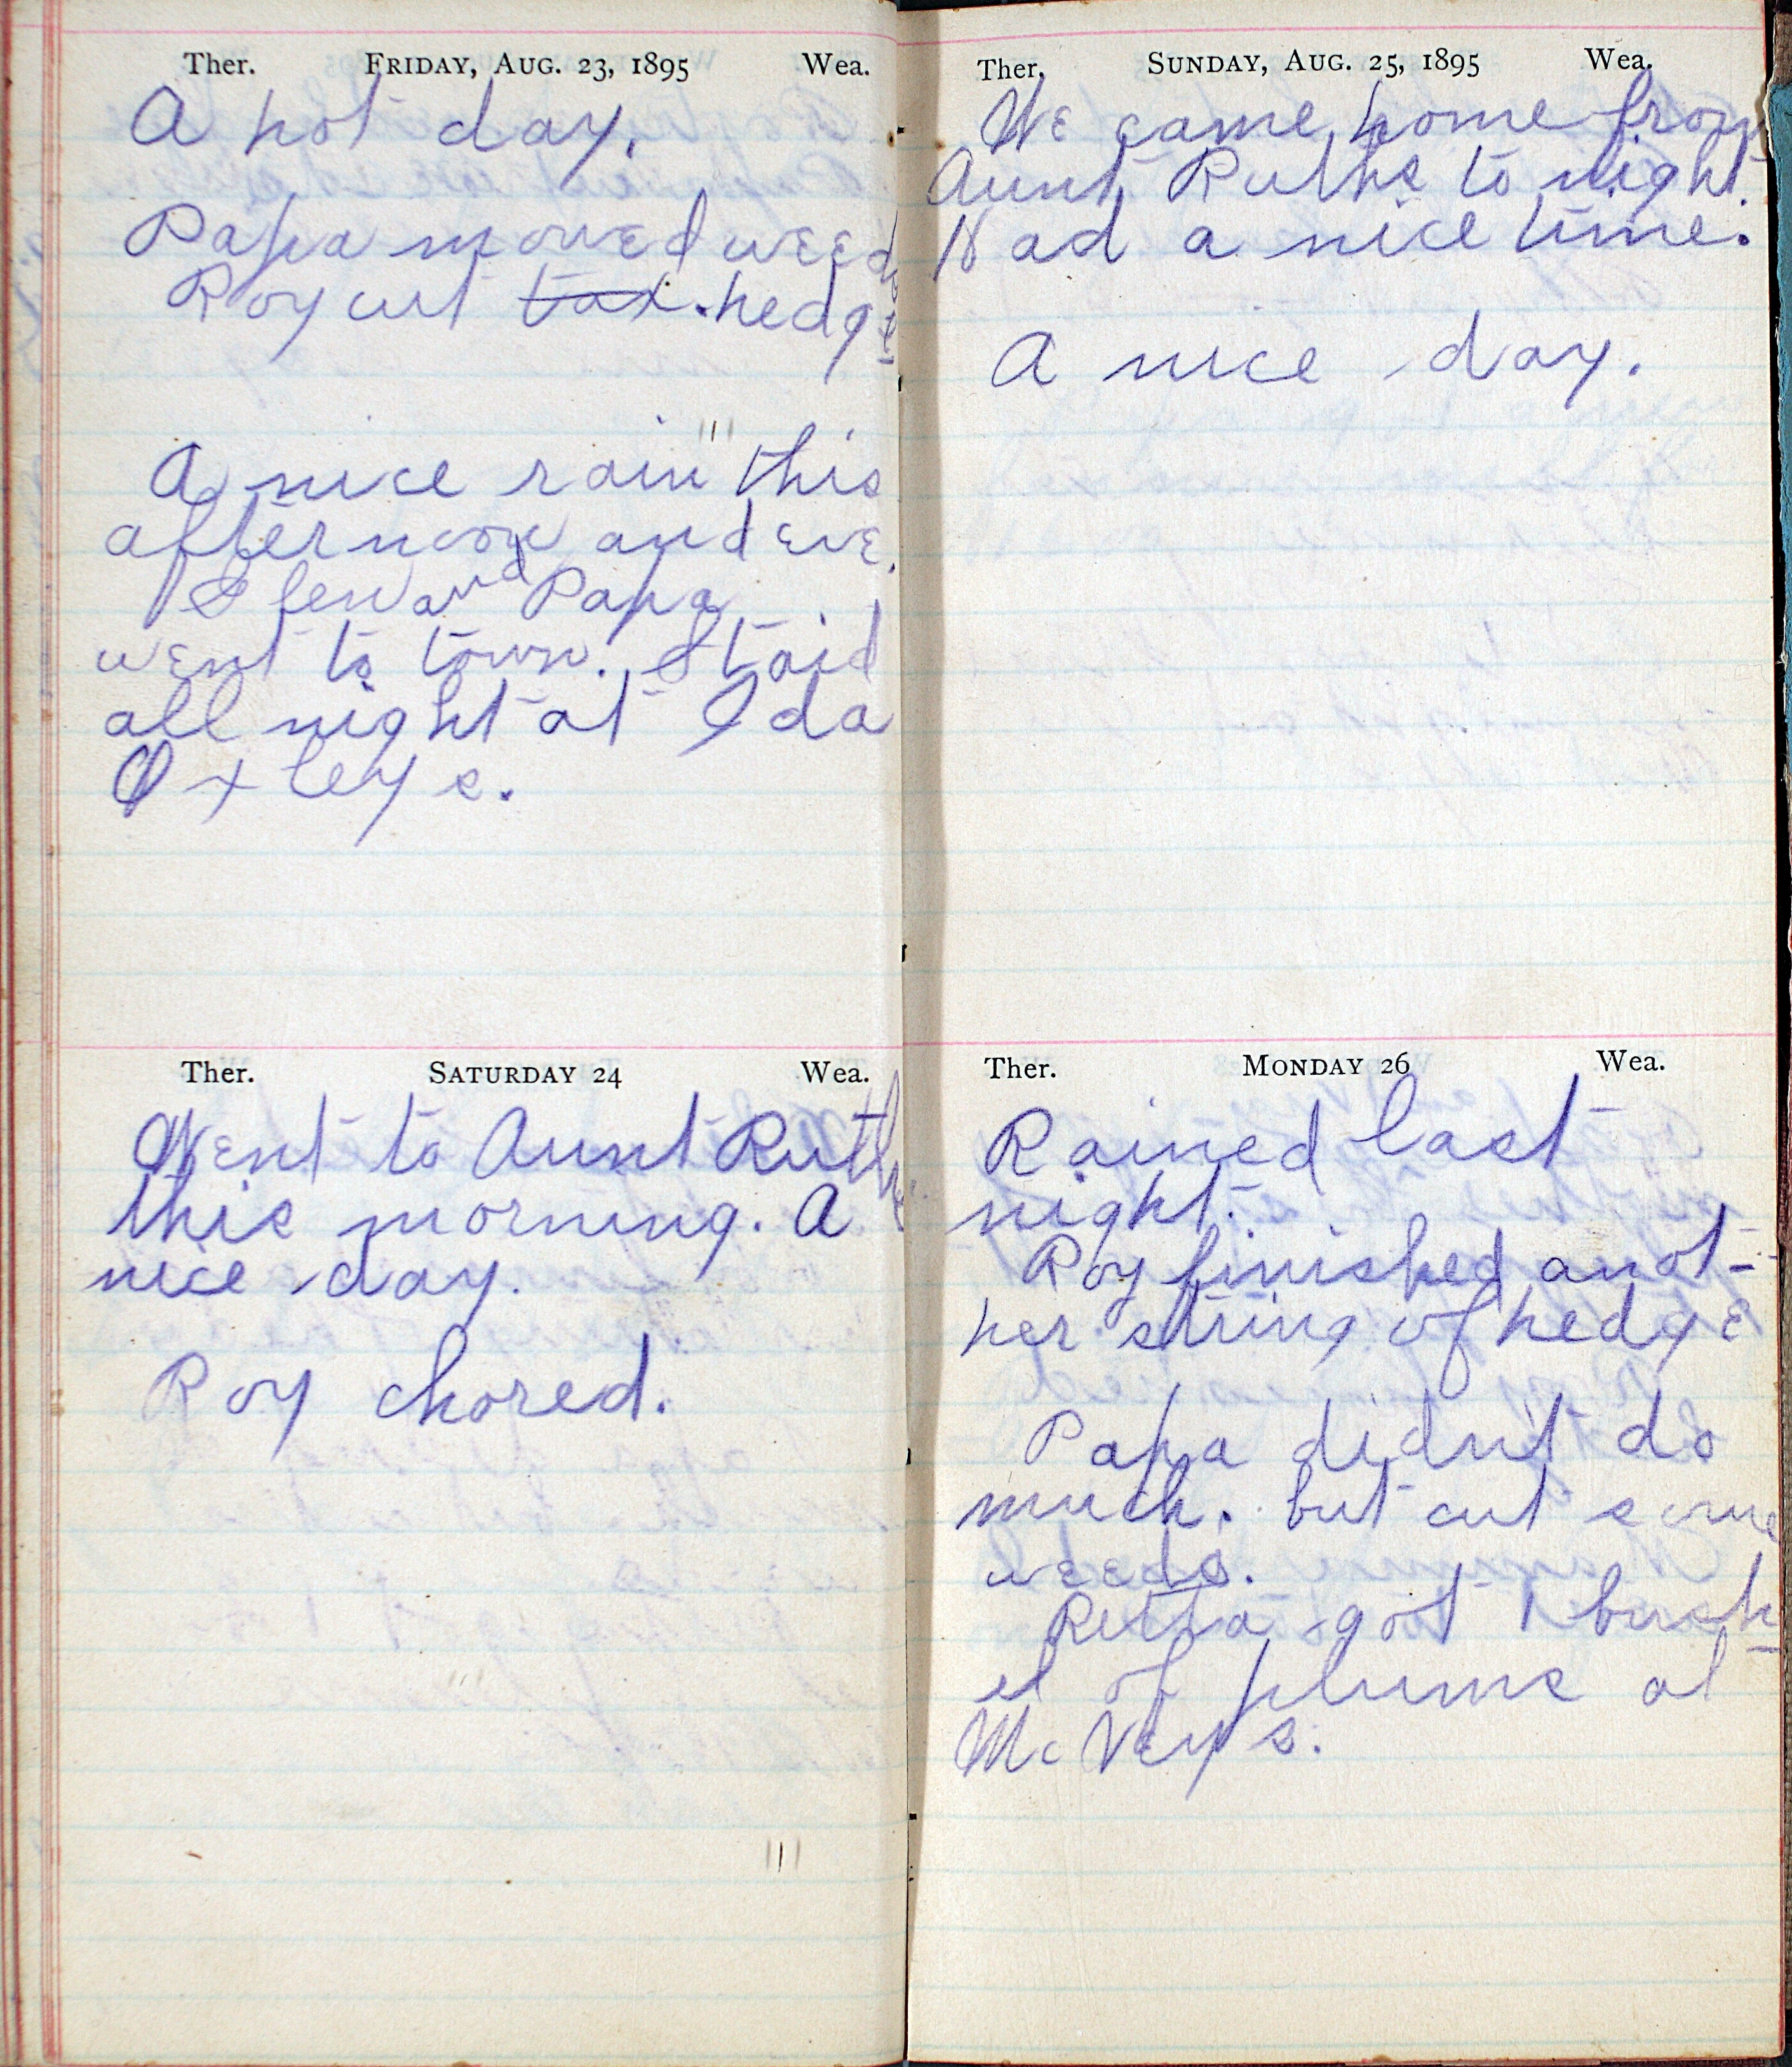 Ther. FRIDAY, AUG. 23, 1895 Wea.
A hot day.
Papa mowed weeds
Roy cut tax. hedge
A nice rain this
afternoon and eve.
and Papa
went to town. Staid
all night at Ida
Oxleys.
Ther. SATURDAY 24 Wea.
Went to Aunt Ruths
this morning. A
nice day.
Roy chored.
Ther. SUNDAY, AUG. 25, 1895 Wea.
We came home from
Aunt Ruths to night.
Had a nice time.
A nice day.
Ther. MONDAY 26 Wea.
Rained last
night.
Roy finished anot-
her string of hedge
Papa didn't do
much. but cut some
weeds.
Retta got 1 bush
el of plums at
McVeys.